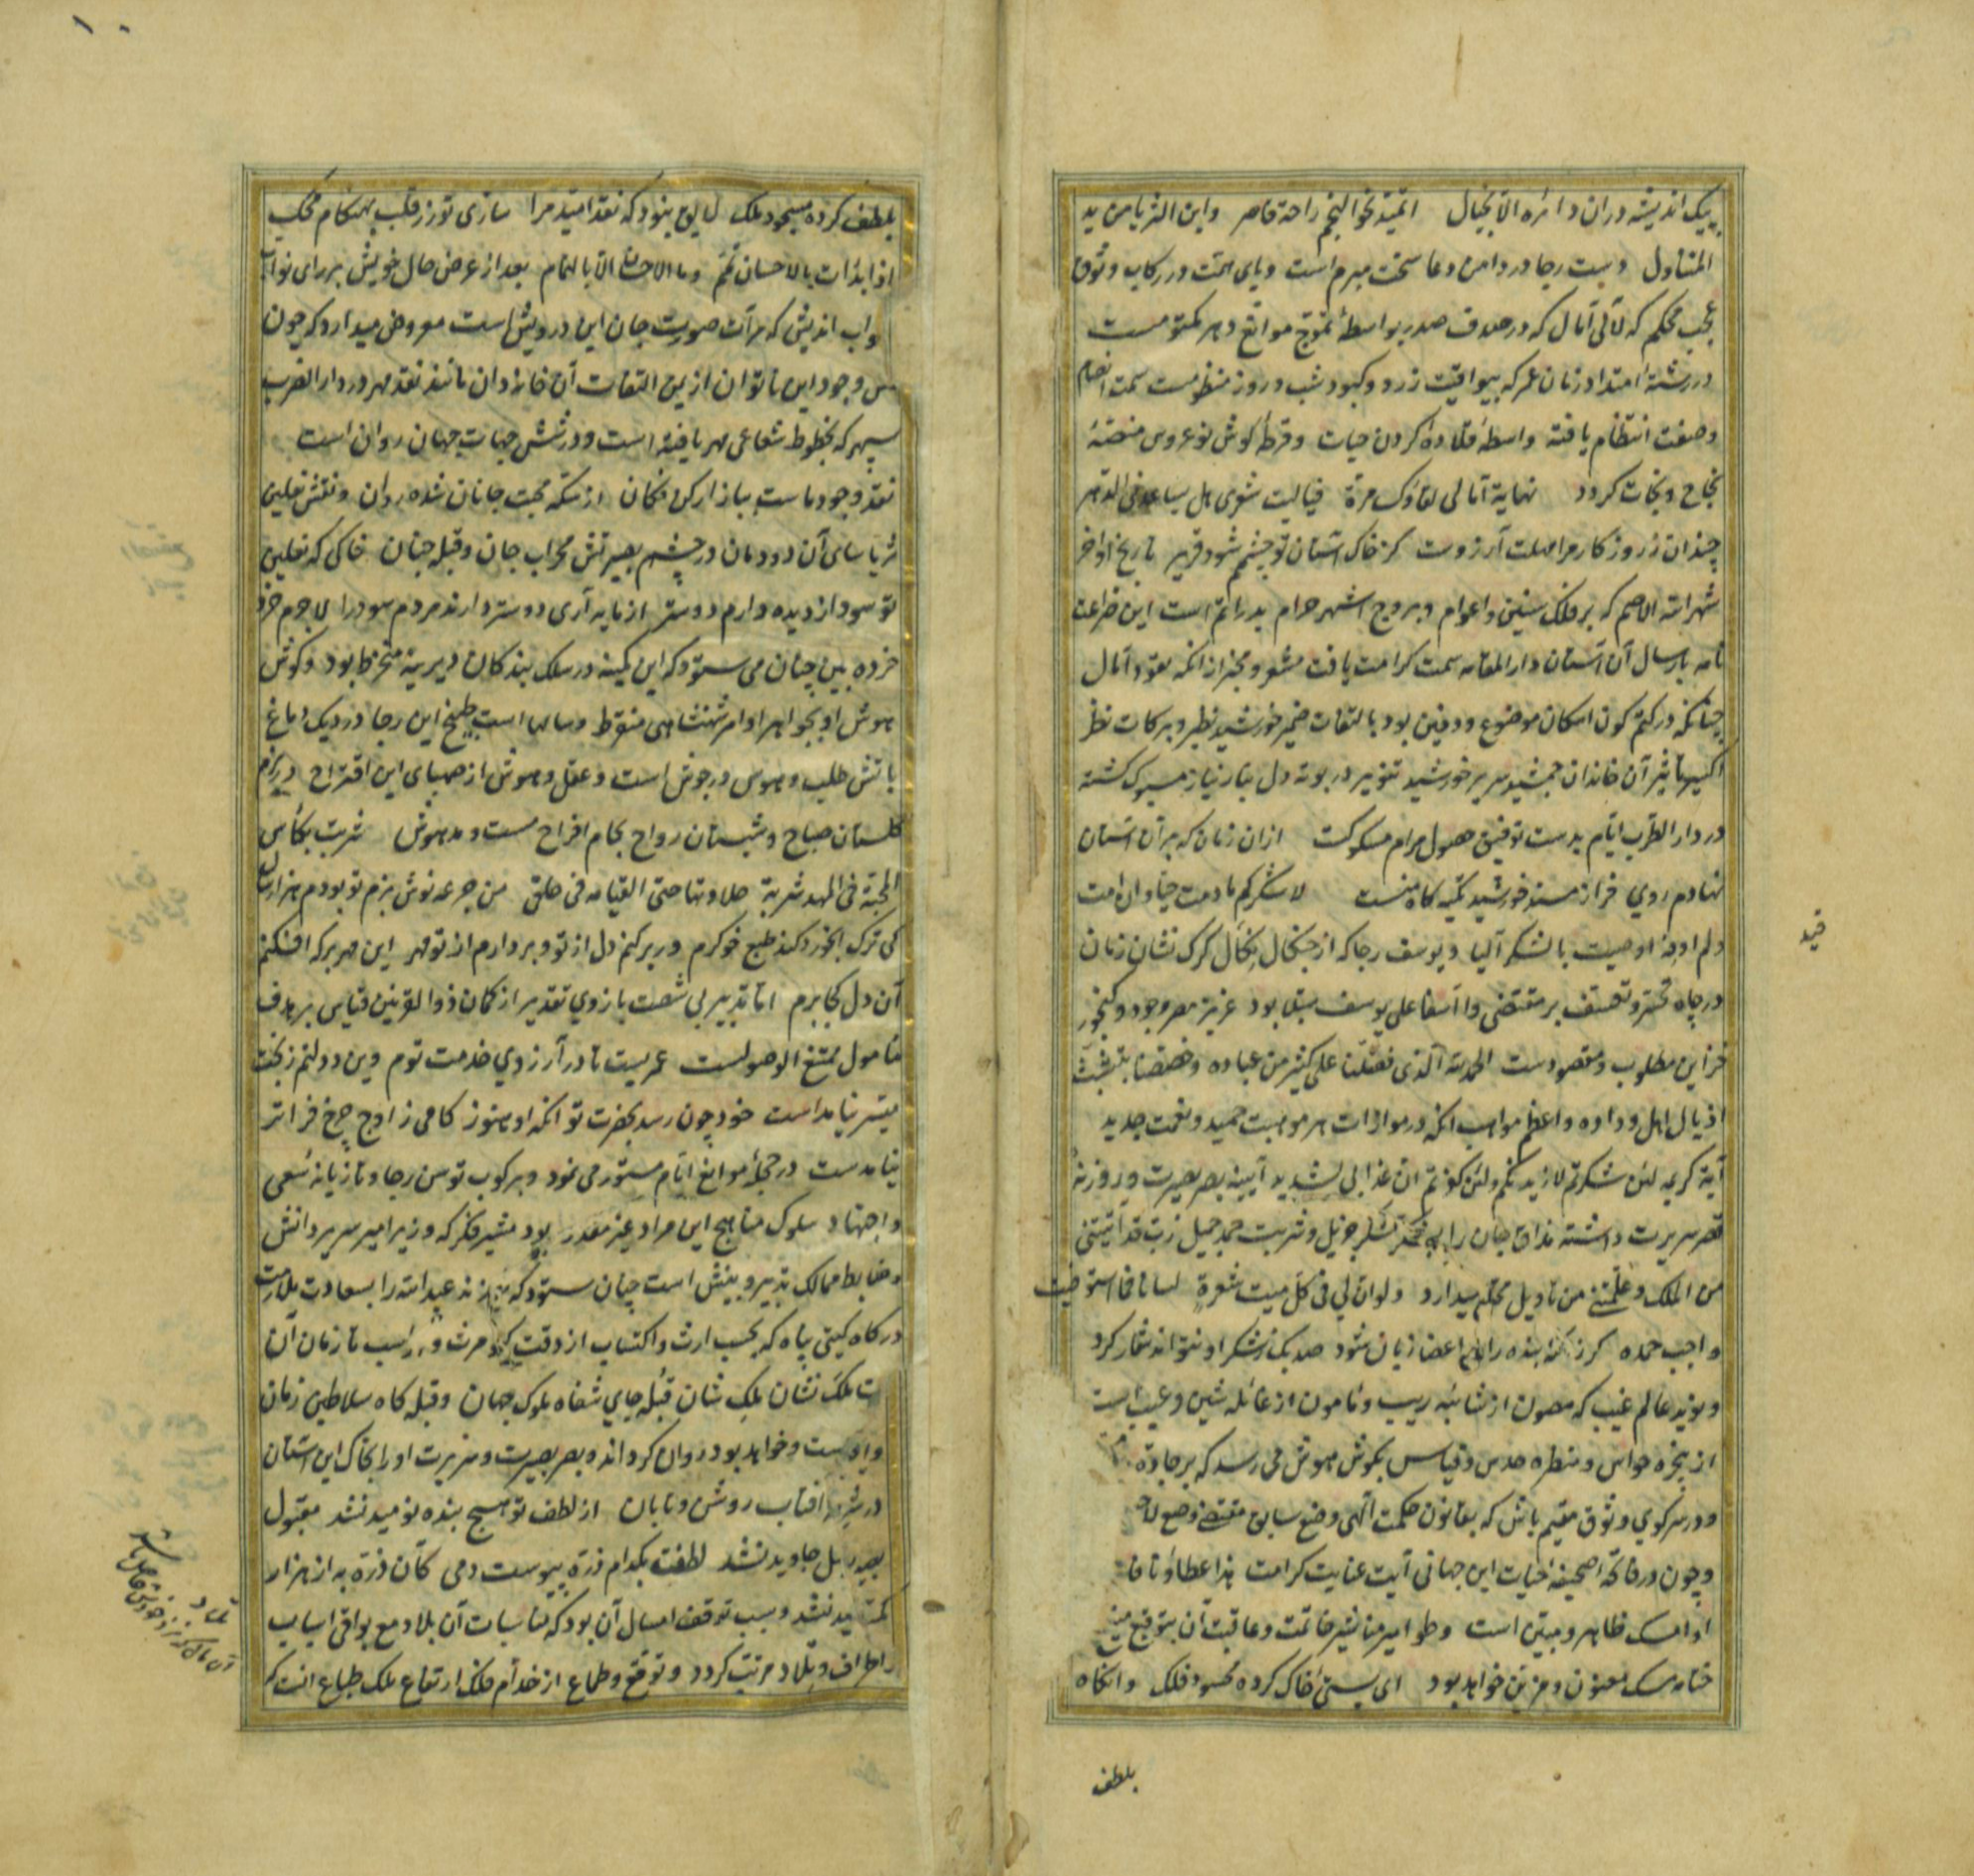 پیک اندیشه دران دائره الا بخیال اتمتد نحو النجم راحة قاصر واین الثریا من ید
المتناول دست رجا در دامن دعا سخت مبرم است و پای همت در رکاب وثوق
عجب محکم که لآلی آمال که در صدف صدر بواسطهٔ تموج موانع دهر مکتومست
در رشتهٔ امتداد زمان عمر که بیواقیت زرد و کبود شب و روز منظومست سمت انضمام
وصفت انتظام یافته واسطهٔ قلادهٔ کردن حیات و قرطهٔ کوش نوعروس منصهٔ
نجاح و نجات کردد نهایة آمالی لقاؤک مرة فیالیت شعری هل یساعدنی الدهر
چندان ز روزکار مرا مهلت آرزوست کز خاک آستان تو چشمم شود قریر تاریخ اواخر
شهر الله الاصم که بر فلک سنین و اعوام و بروج اشهر حرام بدر اتم است این ضراعت
نامه بارسال آن آستان دار المقامه سمت کرامت یافت مشعر و مخبر از انکه نقود آمال
چنانکه در کتم کون امکان موضوع و دفین بود بالتفات ضمیر خورشید نظیر و برکات نظر
اکسیر تاثیر آن خاندان جمشید سریر خورشید تنویر در بوته دل بنار نیاز مسبوک کشته
در دار الضرب ایام بدست توفیق حصول مرام مسکوکست ازان زمان که بر آن آستان
نهادم روی فراز مسند خورشید تکیه کاه منست لا شکرکم ما دمت حیا و ان امت
دلم اوصیت بالشکر آلیا و یوسف رجا که از چنکال نکال کرک نشان زمان
در چاه تحسر و تاسف بر مقتضی وا اسفا علی یوسف مبتلا بود عزیز مصر وجود و کنجور
خزاین مطلوب و مقصودست الحمد لله الذی فضلنا علی کثیر من عباده وخصصنا بتشبث
اذیال اهل وداده واعظم مواهب انکه در موازات هر موهبت حمید و نعمت جدید
آیة کریمه لئن شکرتم لازیدنکم ولئن کفرتم ان عذابی لشدید آیینه بصر بصیرت و روزنه
قصر سریرت داشته مذاق جان را به شکر جزیل و شربت حمد جمیل رب قد آتیتنی
من الملک و علمتنی من تاویل محکم میدارد ولو ان لی فی کل منبت شعرة لسانا لما استوفیت
واجب حمده کر بنده را اعضا زبان شود صد یک ز شکر او نتواند شمار کرد
و نوید عالم غیب که مصون از شائبه ریب و مامون از غائله شین و عیب است
از پنجره حواس و منظره حدس و قیاس بکوش هوش می رسد که بر جاده
و در سر کوی وثوق مقیم باش که بقانون حکمت الهی وضع سابق مقتضی وضع لاحق
و چون در فاتحه صحیفه حیات این جهانی آیت عنایت کرامت هذا عطاؤنا فامنن
او امسک ظاهر و مبین است و طوامیر مناشیر خاتمت و عاقبت آن بتوقیع
ختامه مسک معنون و مزین خواهد بود ای بس خاک کرده محسود فلک وانکاه
بلطف
قید
بلطف کرده مسجود ملک لایق نبود که نقد امید مرا سازی تو زر قلب بهنکام محک
اذا ابدات بالاحسان تمم وما الاحسان الا بالتمام بعد از عرض حال خویش بر رای
صواب اندیش که مرآت صورت جان این درویش است معروض میدارد که چون
مس وجود این ناتوان از یمن التفات آن خاندان مانند نقد مهر در دار الضرب
سپهر که بخطوط شعاعی مهر یافته است و در شش جهات جهان روان است
نقد وجود ماست ببازار کن فکان از سکه محبت جانان شده روان و نقش نعلین
ثریا سای آن دودمان در چشم بصیرتش محراب جان و قبله جنان خاکی که نعلین
تو سود از دیده دارم دوستر از مایه آری دوستر دارند مردم سود را لاجرم خرد
خرده بین چنان می ستود که این کمینه در سلک بندکان دیرینه منخرط بود و کوش
هوش او بجواهر اوامر شهنشاهی متقرط و سالها است طبیخ این رجا در دیک دماغ
باتش طلب و هوس در جوش است و عقل و هوش از صهبای این اقتراح در بزم
کلستان صباح و شبستان رواح بجام افراح مست و مدهوش شربت بکأس
المحبة فی المهد شربة حلاوتها حتی القیامه فی حلق من جرعه نوش بزم تو بودم هزار سال
کی ترک آبخورد کند طبع خوکرم ور برکنم دل از تو و بردارم از تو مهر این مهر بر که افکنم
آن دل کجا برم اما تدبیر بی شصت بازوی تقدیر از کمان ذو القرنین قیاس بر هدف
مامول ممتنع الوصولست عمریست تا در آرزوی خدمت توم وین دولتم ز بخت
میسر نیامدست خود چون رسد بحضرت تو انکه او هنوز کامی ز اوج چرخ فراتر
نیامدست در حجلهٔ موانع ایام مستور می نمود و برکوب توسن رجا و تازیانه سعی
و اجتهاد سلوک مناهج این مراد غیر مقدر بود مشیر فکر که وزیر امیر سریر دانش
و ضابط ممالک تدبیر و بینش است چنان ستود که فرزند عبد الله را بسعادت ملازمت
درکاه کیتی پناه که بحسب ارث و اکتساب از وقت کیومرث و لهراسب تا زمان آن
ملک نشان ملک شان قبله جای شفاه ملوک جهان و قبله کاه سلاطین زمان
و اوست و خواهد بود روان کرداند و بصر بصیرت و سریرت او را بخاک این آستان
آفتاب روشن و تابان از لطف تو هیچ بنده نومید نشد مقبول
جاوید نشد لطفت بکدام ذره پیوست دمی کان ذره به از هزار
خورشید نشد و سبب توقف امسال آن بود که مناسبات آن بلاد مع بواقی اسباب
اطراف و بلاد مرتب کردد و توقع و طماع از خدام فلک ارتفاع ملک طباع انست که